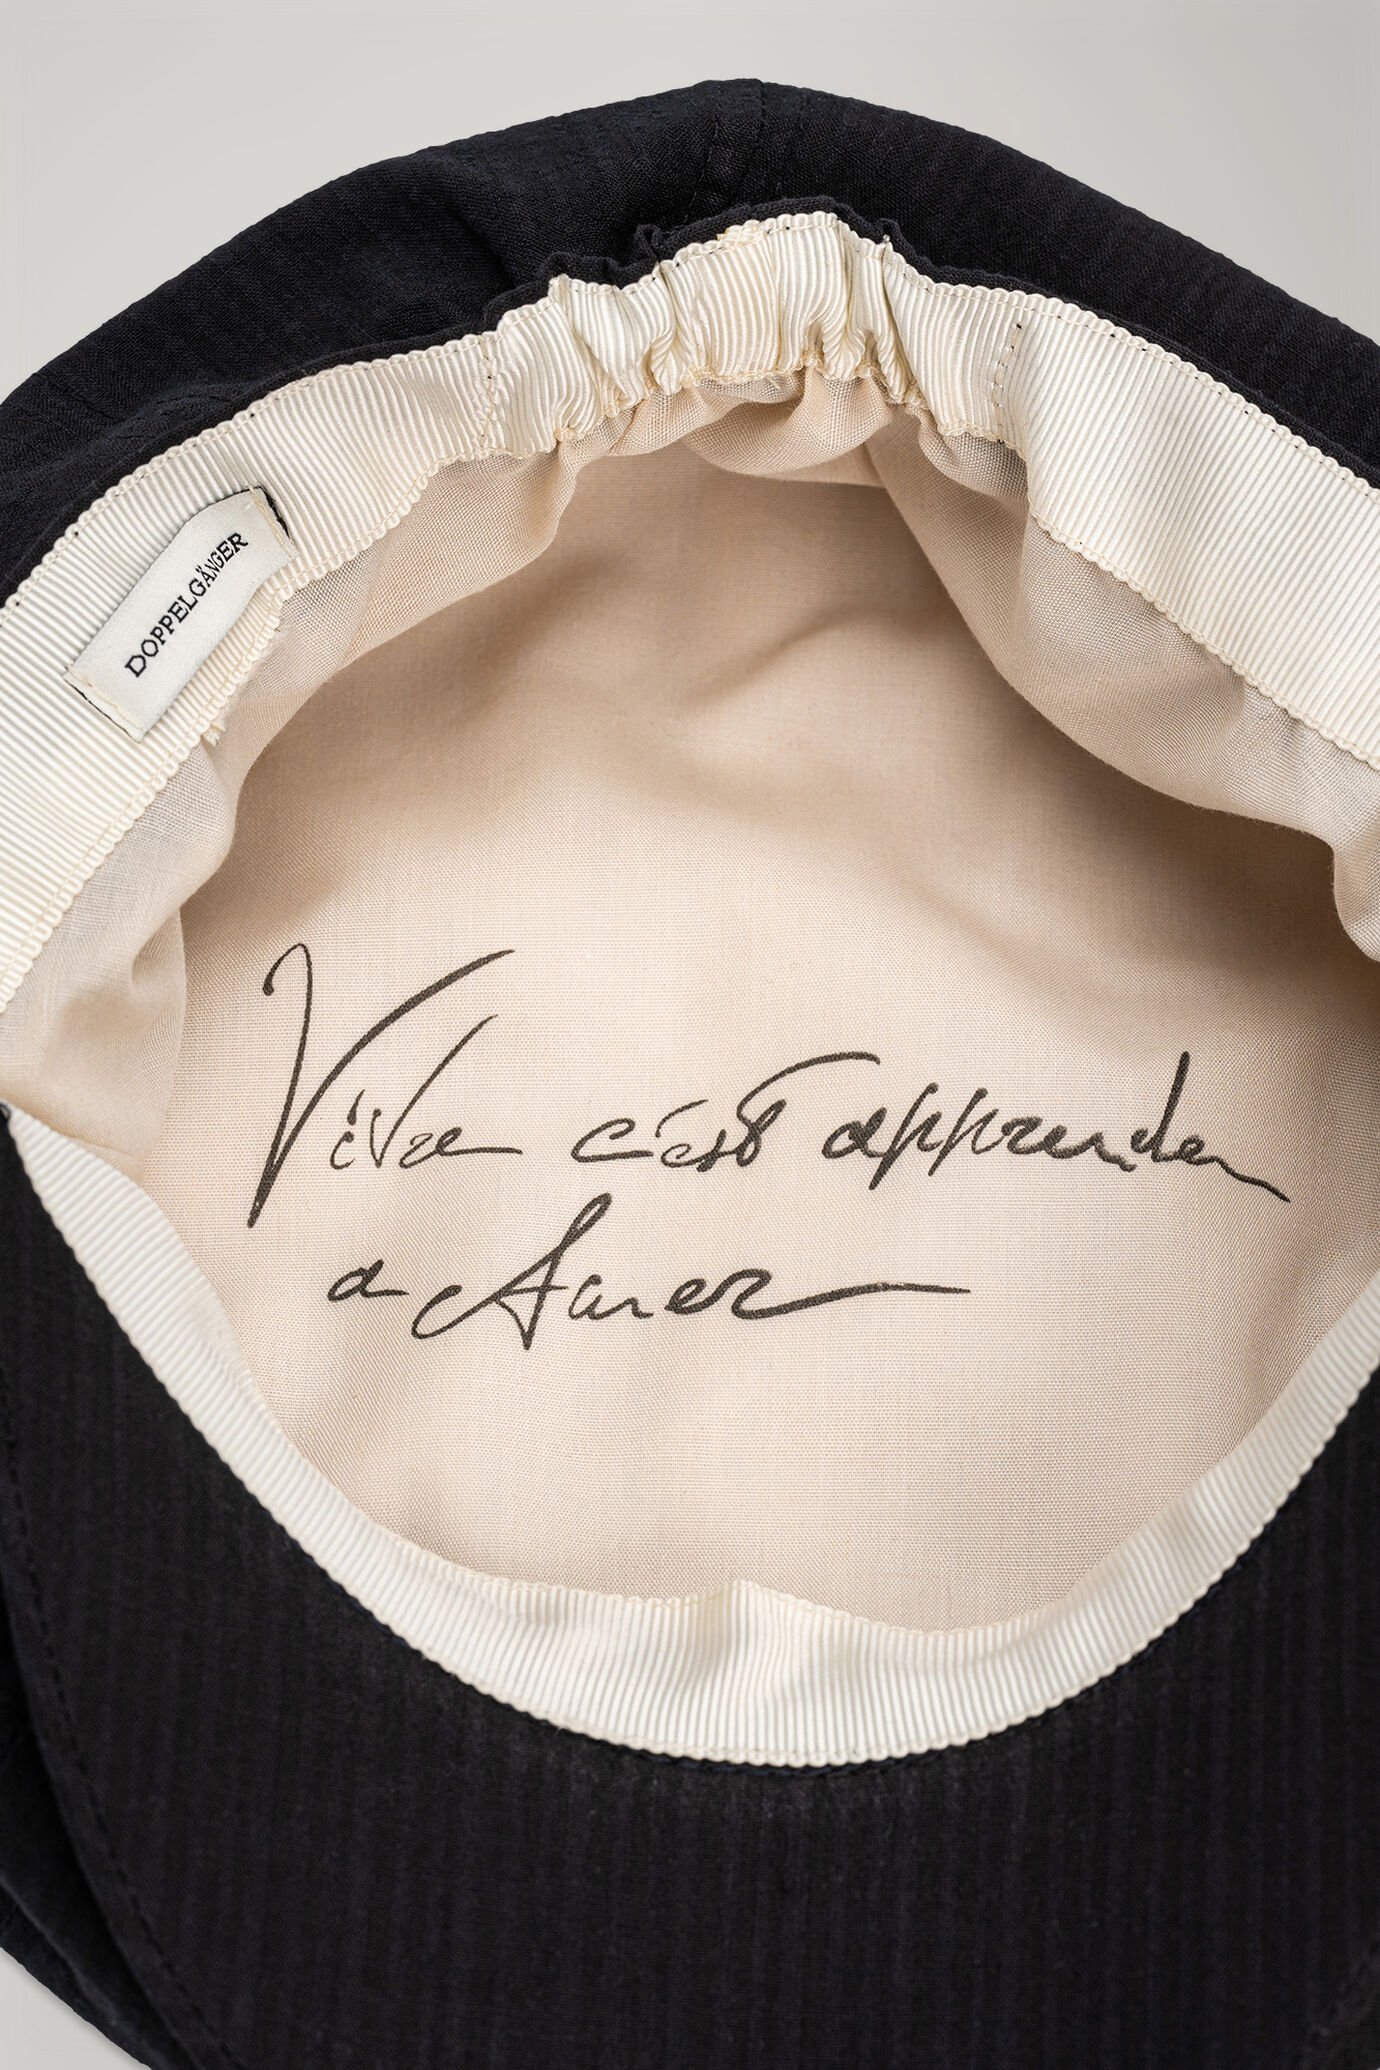 DOPPELGÄNGER
Vivre c'est apprendre
a aimer